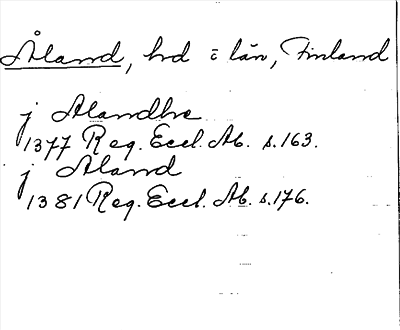 Åland, hd i län, Finland
j Alandhe
1377 Reg. Eccl. Ab. s. 163.
j Aland
1381 Reg. Eccl. Ab. s. 176.